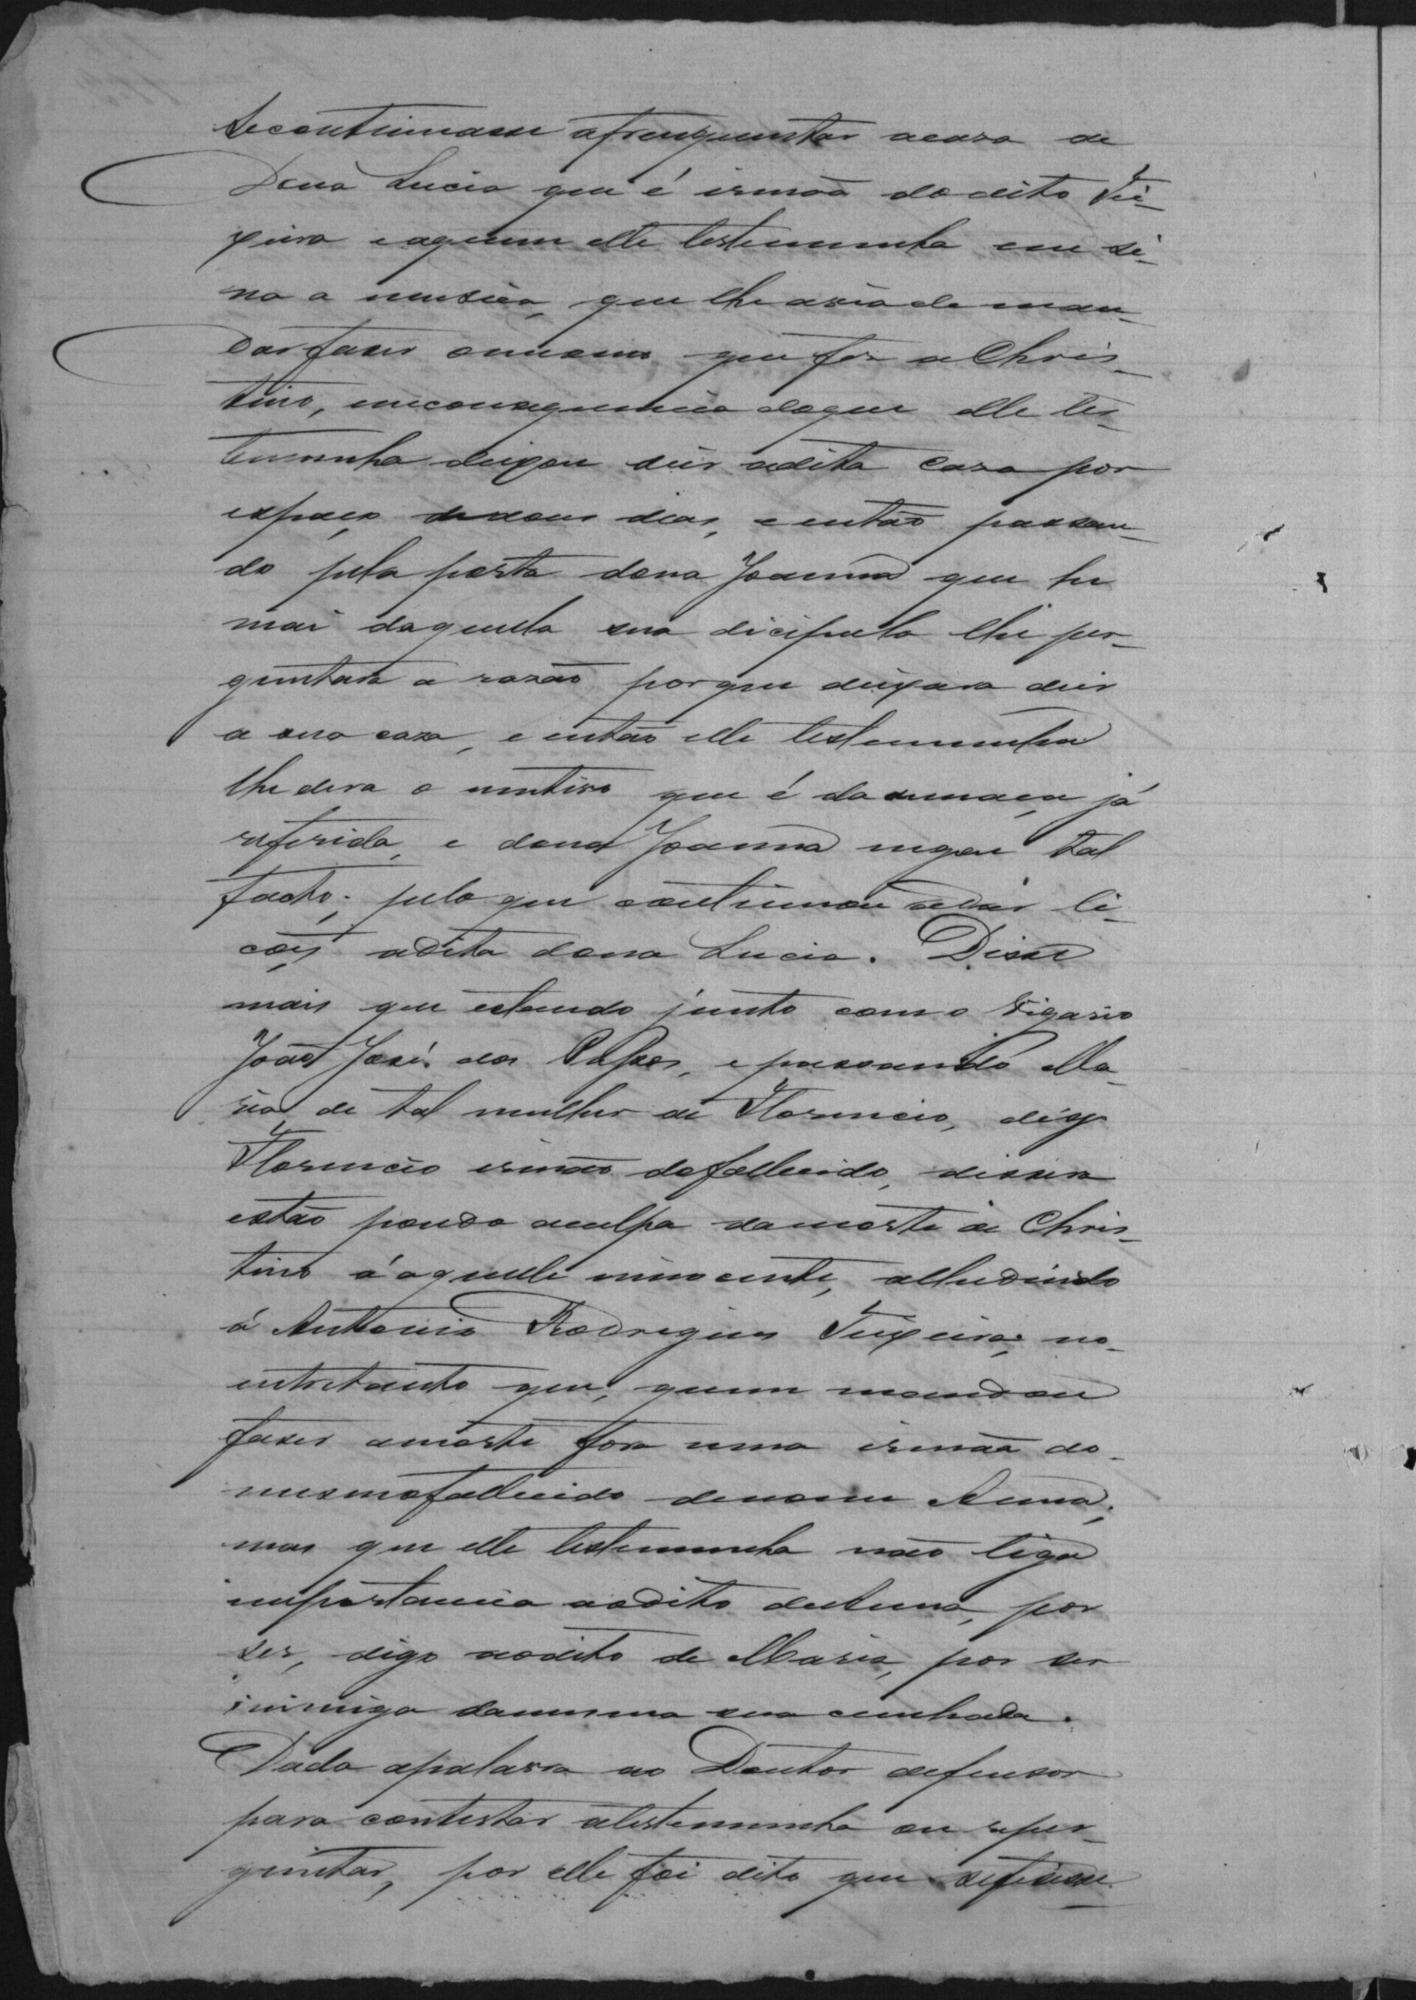 se continuasse afrenquentar a casa de
Dona Lucia que é irmaã do dito Tei-
xeira e aquem elle testemunha ensi-
na a musica, que lhe avia de man-
dar fazer omesmo que fez a Chris-
tino, em consequencia do que elle tes-
temunha deixou deir adita casa por
espaço de dous dias, e então passan-
do pela porta dona Joanna que he
mai daquella sua dicipula lhe per-
guntara a rasão porque deixara deir
a sua casa, e então elle testemunha
lhe dera o motivo que é da ameaça já
referida, e dona Joanna negou tal
facto; pelo que continuou adar li-
coẽs adita dona Lucia. Disse
mais que estando junto com o Vigario
João José dos , e passando Ma-
ria de tal mulher de Florencio, digo
Florencio irmão do fallecido, dissera
estão pondo aculpa da morte de Chris-
tino á aquelle innocente, alludindo
á Antonio Rodrigues Teixeira, no
entretanto que, quem mandou
fazer amorte fora uma irmaã do
mesmo fallecido de nome Anna;
mas que elle testemunha não liga
importancia ao dito de , por
ser, digo ao dito de Maria, por ser
inimiga da mesma sua cunhada.
Dada apalavra ao Doutor defensor
para contestar atestemunha ou reper-
guntar, por elle foi dito que